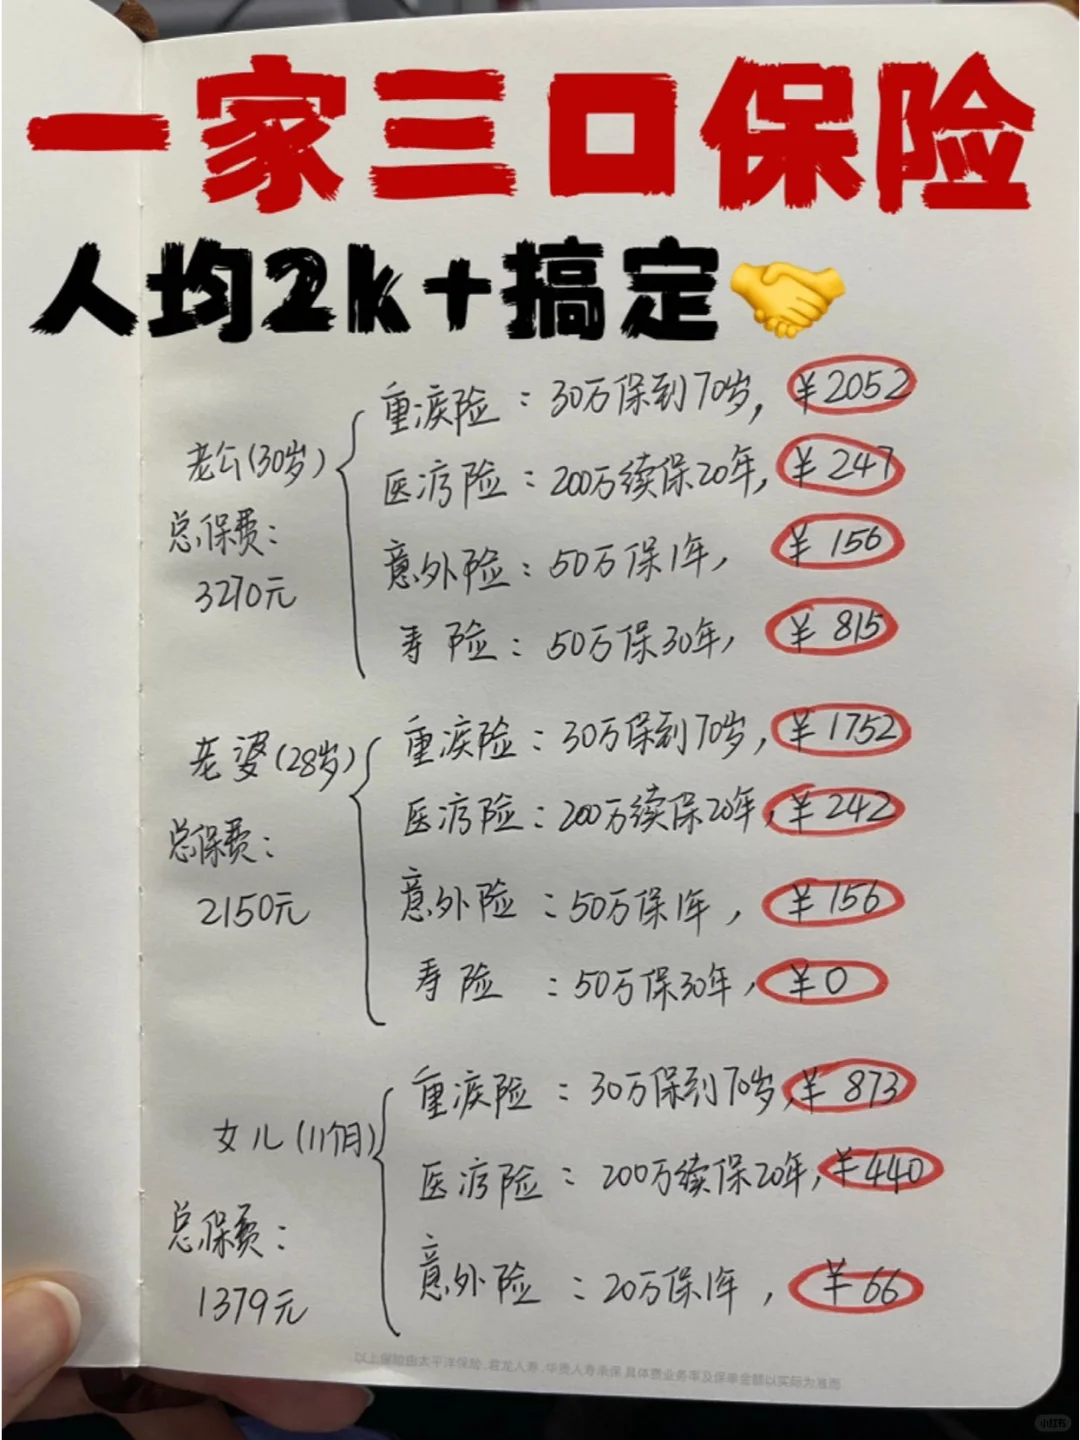 一家三口保险
人均2k+搞定
老公(30岁)
总保费:
3270元
重疾险:30万保到70岁,¥2052
医疗险:200万续保20年,¥247
意外险:50万保1年,¥156
寿险:50万保30年,¥815
老婆(28岁)
总保费:
2150元
重疾险:30万保到70岁,¥1752
医疗险:200万续保20年,¥242
意外险:50万保1年,¥156
寿险:50万保30年,¥0
女儿(11个月)
总保费:
1379元
重疾险:30万保到70岁,¥873
医疗险:200万续保20年,¥440
意外险:20万保1年,¥66
以上保险由太平洋保险、君龙人寿、华贵人寿承保 具体费业务率及保单金额以实际为准而
小红书